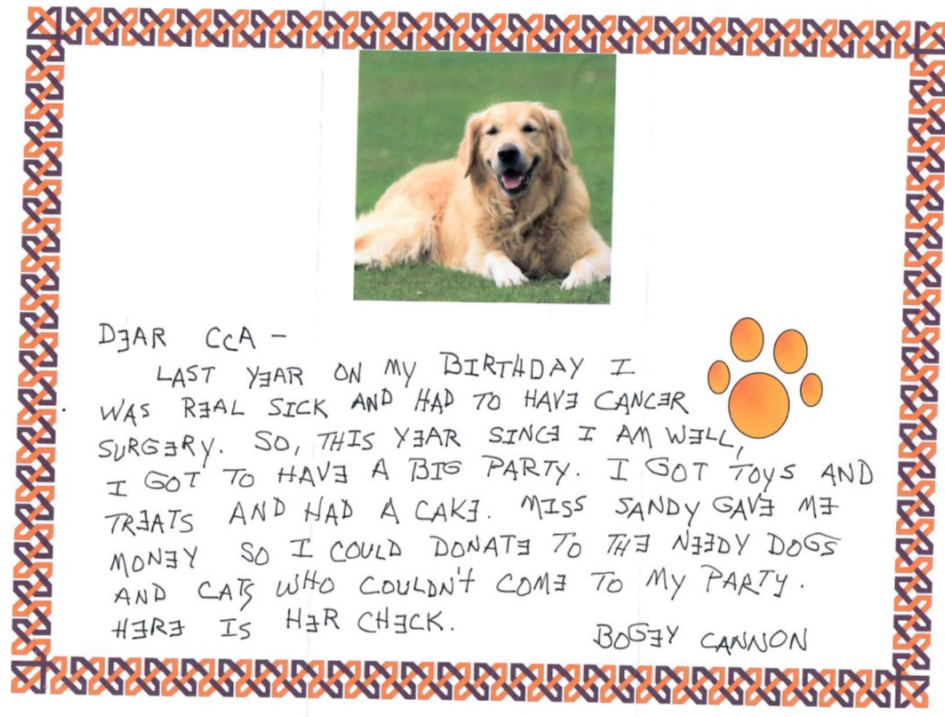 DEAR CCA -
LAST YEAR ON MY BIRTHDAY I
WAS REAL SICK AND HAD TO HAVE CANCER
SURGERY. SO, THIS YEAR SINCE I AM WELL,
I GOT TO HAVE A BIG PARTY. I GOT TOYS AND
TREATS AND HAD A CAKE. MISS SANDY GAVE ME
MONEY SO I COULD DONATE TO THE NEEDY DOGS
AND CATS WHO COULDN'T COME TO MY PARTY.
HERE IS HER CHECK.
BOGEY CANNON